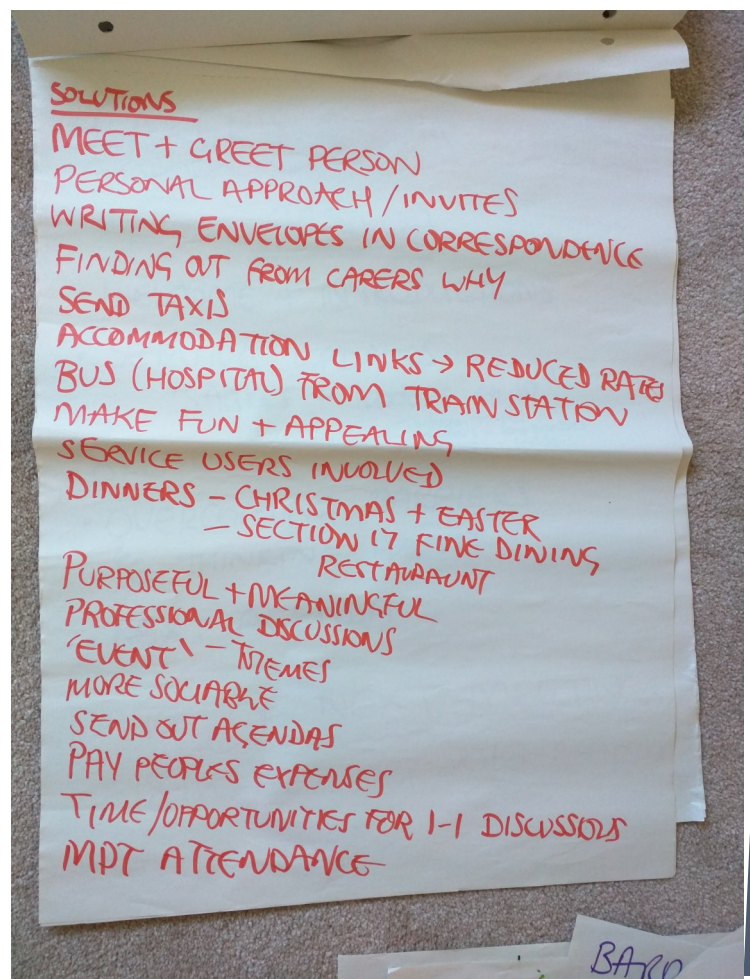 SOLUTIONS
MEET + GREET PERSON
PERSONAL APPROACH / INVITES
WRITING ENVELOPES IN CORRESPONDENCE
FINDING OUT FROM CARERS WHY
SEND TAXIS
ACCOMMODATION LINKS → REDUCED RATES
BUS (HOSPITAL) FROM TRAIN STATION
MAKE FUN + APPEALING
SERVICE USERS INVOLVED
DINNERS - CHRISTMAS + EASTER
- SECTION 17 FINE DINING
RESTAURAUNT
PURPOSEFUL + MEANINGFUL
PROFESSIONAL DISCUSSIONS
'EVENT' - THEMES
MORE SOCIABLE
SEND OUT AGENDAS
PAY PEOPLES EXPENSES
TIME/OPPORTUNITIES FOR 1-1 DISCUSSIONS
MDT ATTENDANCE